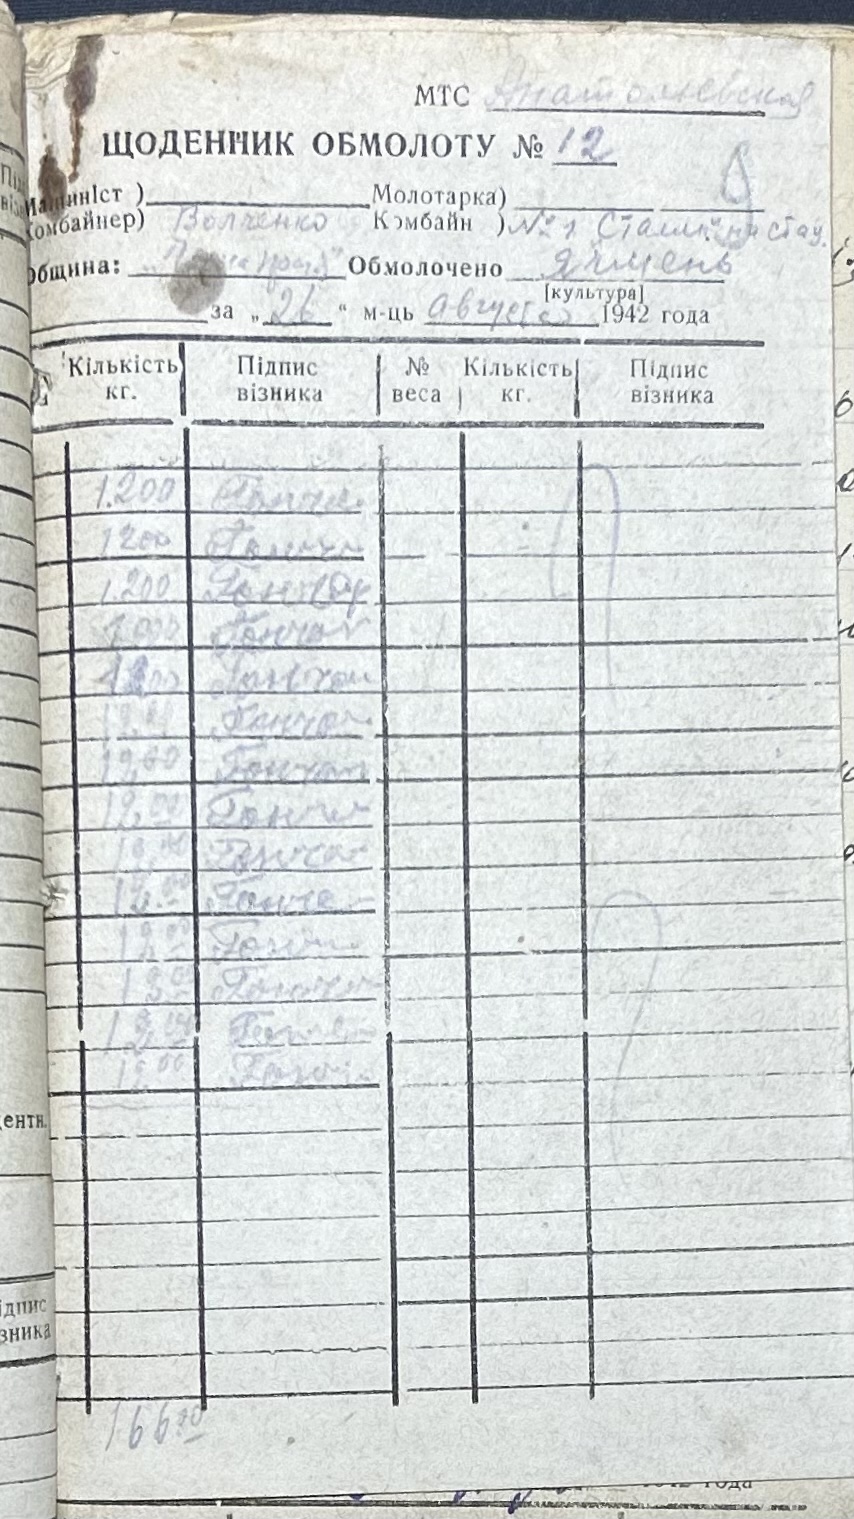 МТС Анатолиевская
ЩОДЕННИК ОБМОЛОТУ № 12
Машиніст ) Молотарка)
Комбайнер) Волченко Комбайн ) № 1 Сталинист
Община: Обмолочено ячмень
[культура]
за „ 26 “ м-ць Августа 1942 года
Кількість Підпис № Кількість Підпис
кг. візника веса кг. візника
1.200 Гончар
1200 Гончар
1.200 Гончар
1000 Гончар
1200 Гончар
1200 Гончар
1200 Гончар
1200 Гончар
1200 Гончар
1200 Гончар
1200 Гончар
1200 Гончар
1200 Гончар
1200 Гончар
16600
ідпис
зника
1942 года